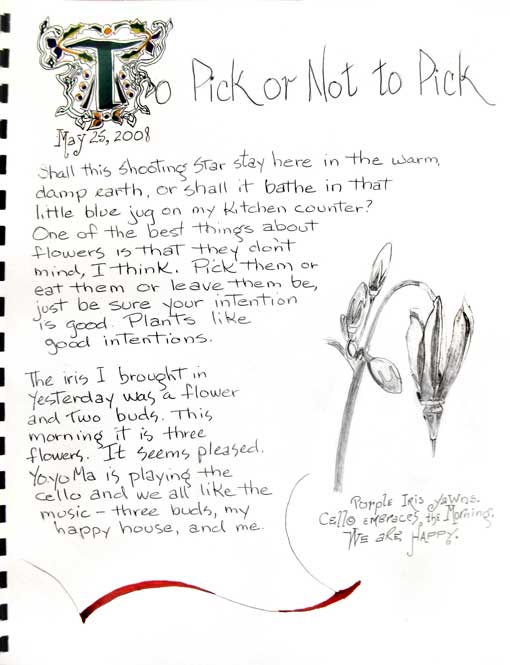 To Pick or Not to Pick
May 25, 2008
Shall this shooting star stay here in the warm,
damp earth, or shall it bathe in that
little blue jug on my kitchen counter?
One of the best things about
flowers is that they don't
mind, I think. Pick them or
eat them or leave them be,
just be sure your intention
is good. Plants like
good intentions.
The iris I brought in
yesterday was a flower
and two buds. This
morning it is three
flowers. It seems pleased.
Yo.yo Ma is playing the
cello and we all like the
music – three buds, my
happy house, and me.
Purple Iris yawns.
Cello embraces the Morning.
We are Happy.